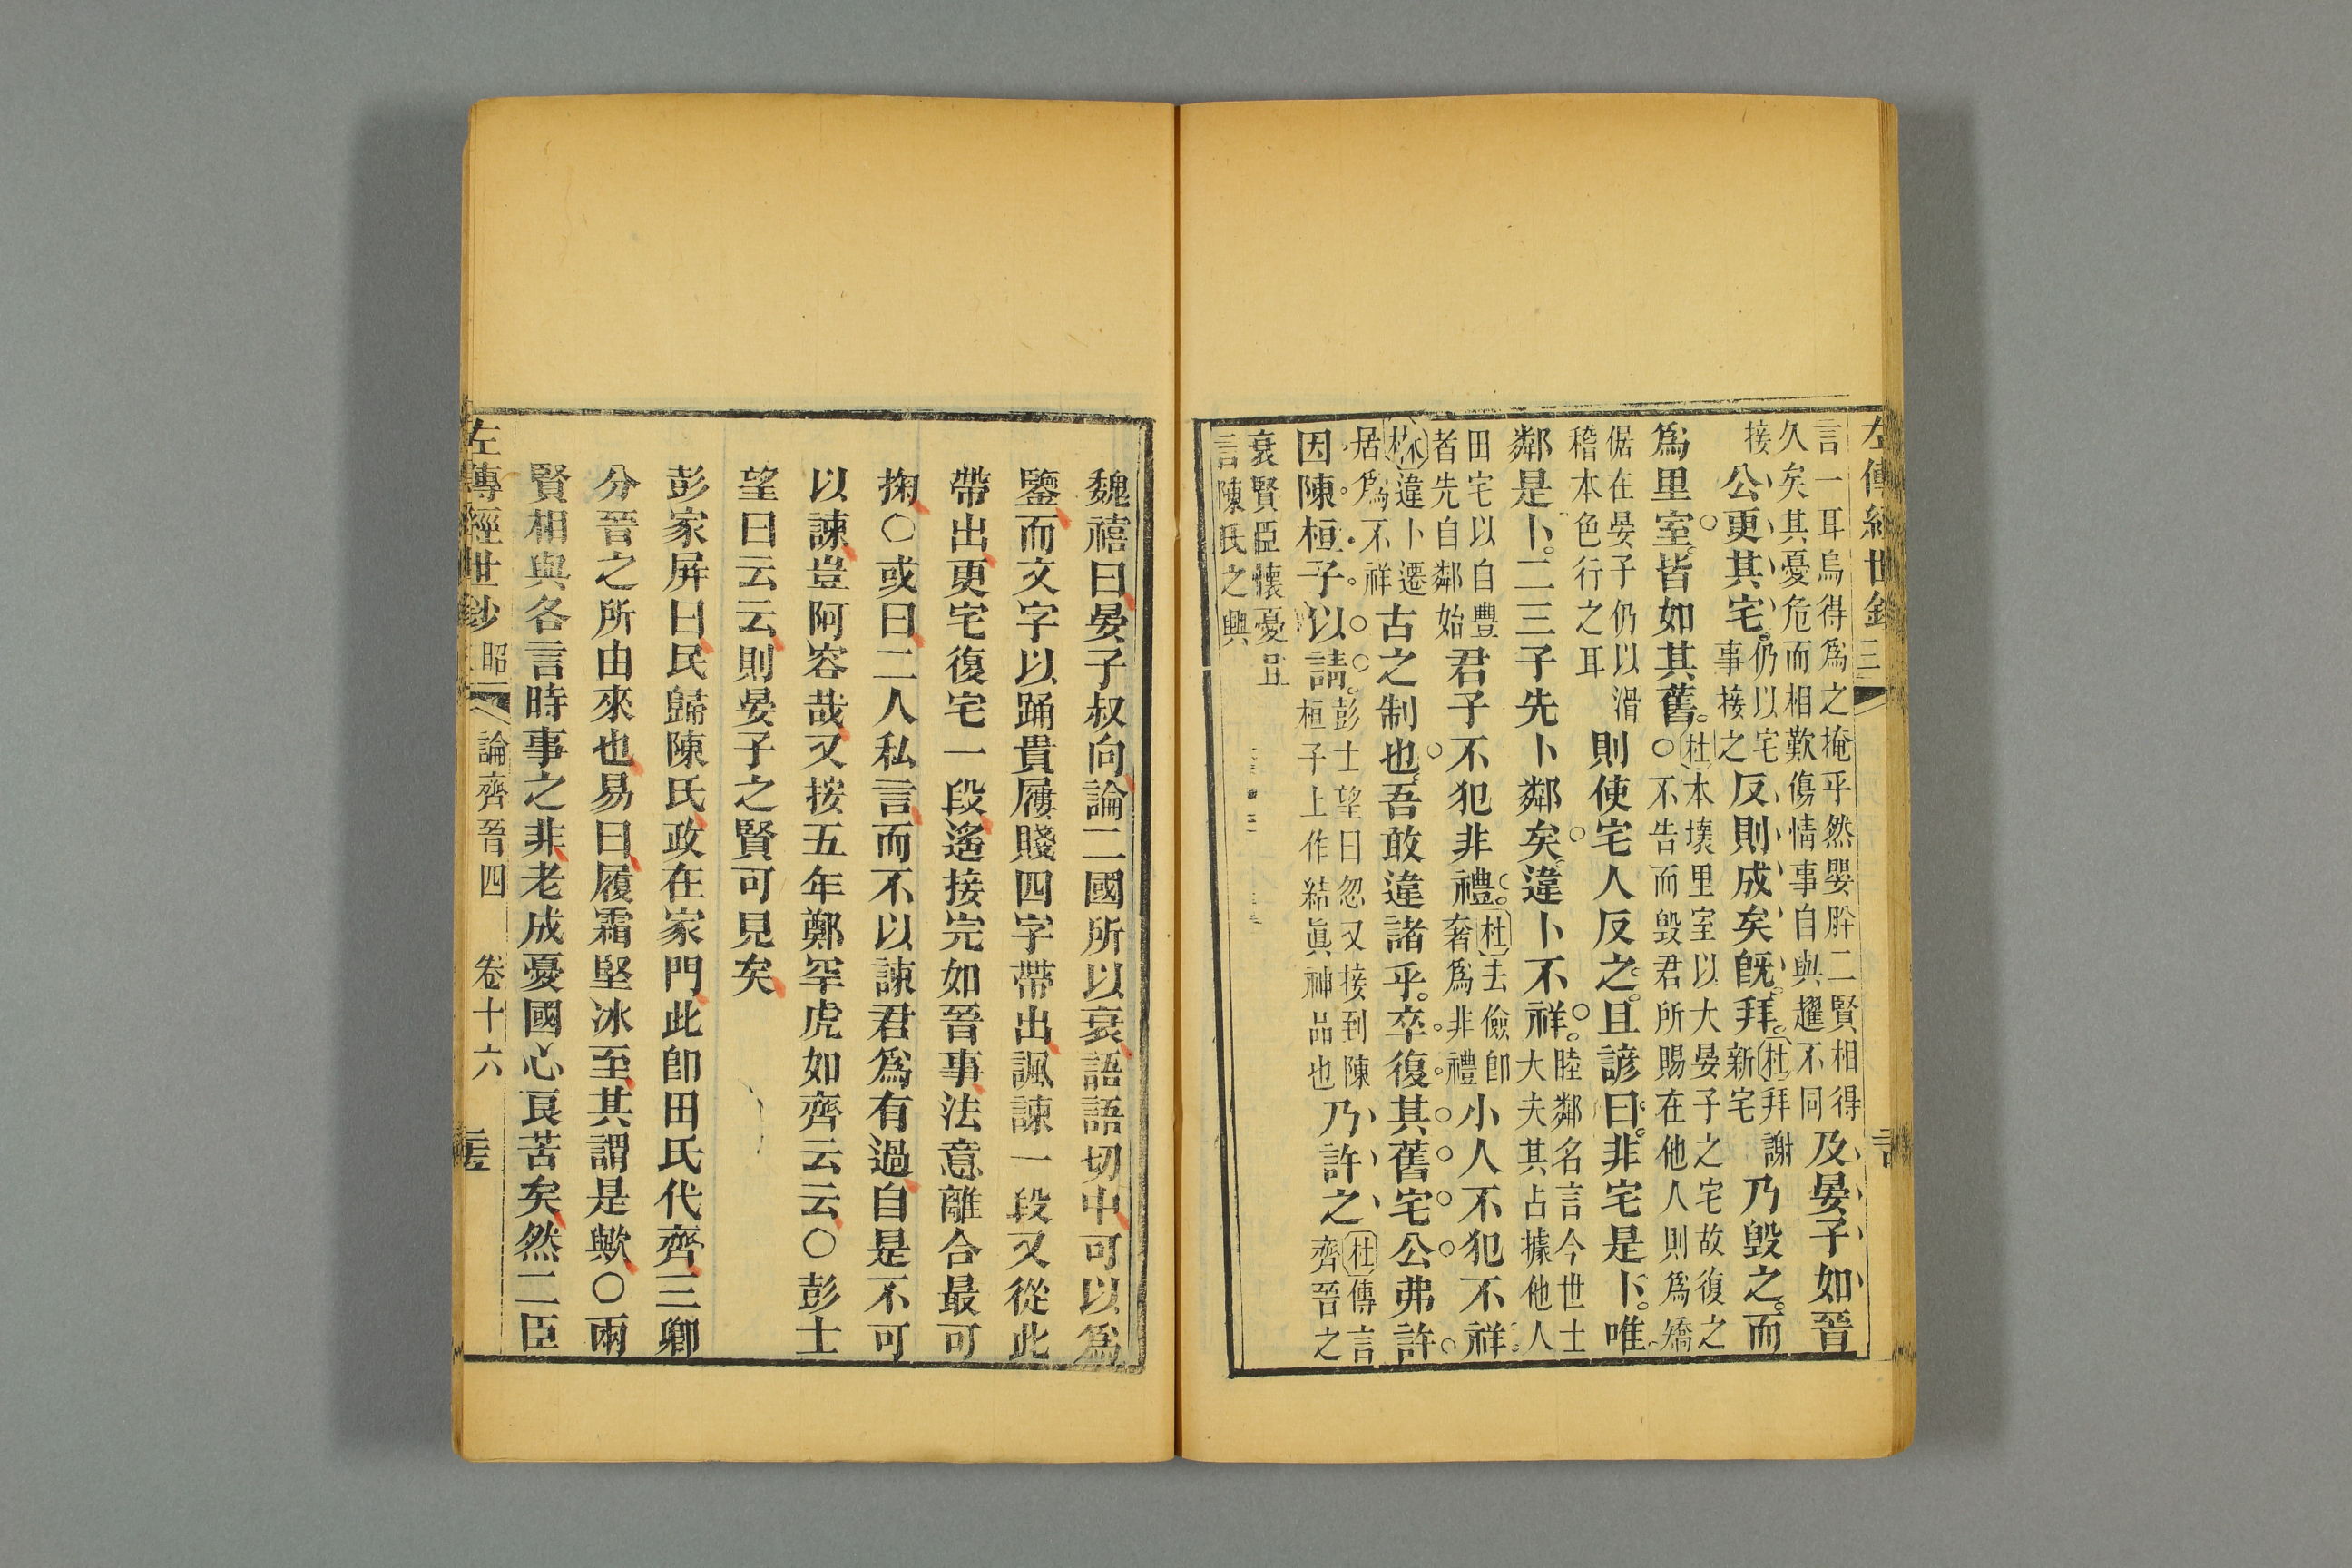 左傳經世鈔
言一耳烏得爲之掩乎然嬰肸二賢相得
久矣其憂危而相歎傷情事自與趯不同
及晏子如晉
接
公更其宅。仍以宅
事接之
反則成矣旣拜。
杜拜謝
新宅
乃毀之。而
爲里室。皆如其舊。
杜本壞里室以大晏子之宅故復之
○不告而毀君所賜在他人則爲嬌
倨在晏子仍以滑
稽本色行之耳
則使宅人反之。且諺曰。非宅是卜。唯
鄰是卜。二三子先卜鄰矣。違卜不祥。
睦鄰名言今世士
大夫其占據他人
田宅以自豐
者先自鄰始
君子不犯非禮。
杜去儉卽
奢爲非禮
小人不犯不祥。
林違卜遷
居爲不祥
古之制也。吾敢違諸乎。卒復其舊宅公弗許
因陳桓子以請。
彭士望曰忽又接到陳
桓子上作結眞神品也
乃許之
杜傳言
齊晉之
衰賢臣懷憂且
言陳氏之興
魏禧曰晏子叔向論二國所以衰語語切中可以爲
鑒而文字以踊貴屨賤四字帶出諷諫一段又從此
帶出更宅復宅一段遙接完如晉事法意離合最可
掬○或曰二人私言而不以諫君爲有過自是不可
以諫豈阿容哉又按五年鄭罕虎如齊云云○彭士
望曰云云則晏子之賢可見矣
彭家屏曰民歸陳氏政在家門此卽田氏代齊三卿
分晉之所由來也易曰履霜堅冰至其謂是歟○兩
賢相與各言時事之非老成憂國心良苦矣然二臣
左傳經世鈔 昭 論齊晉四 卷十六